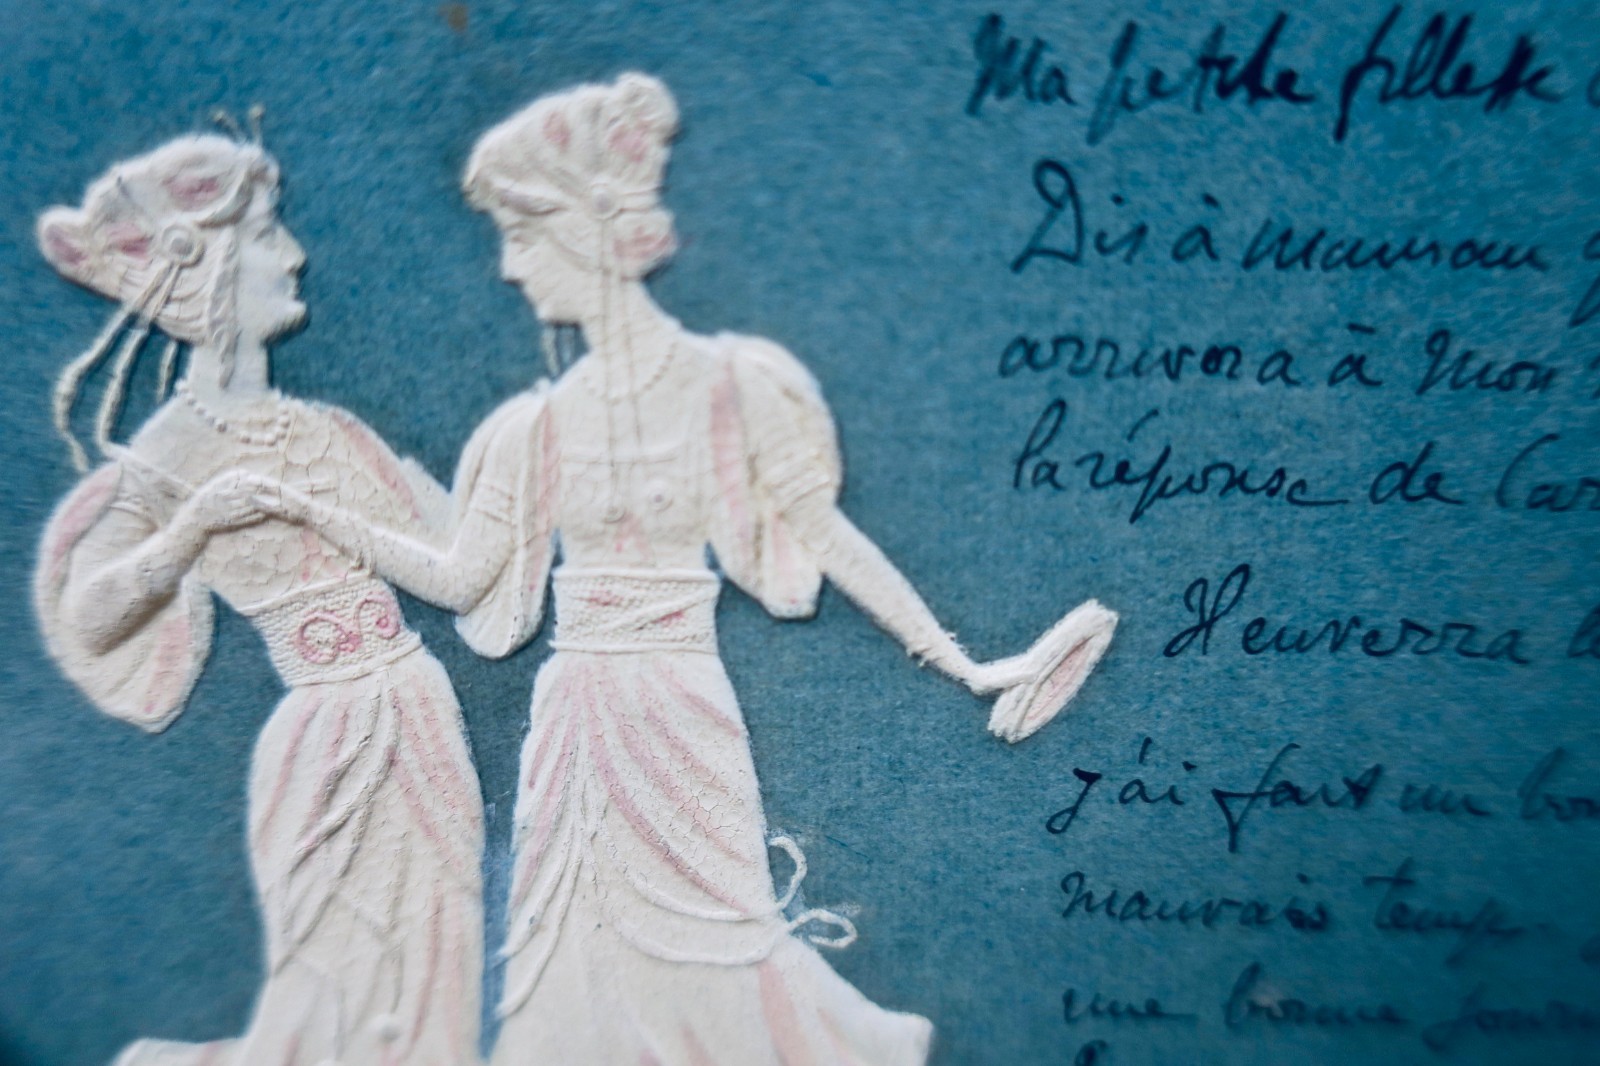 Ma petite fillette
Dis à maman
arrivera à mon
la réponse de Car
Heuverra le
j'ai fait un bon
mauvais temps
une bonne journ